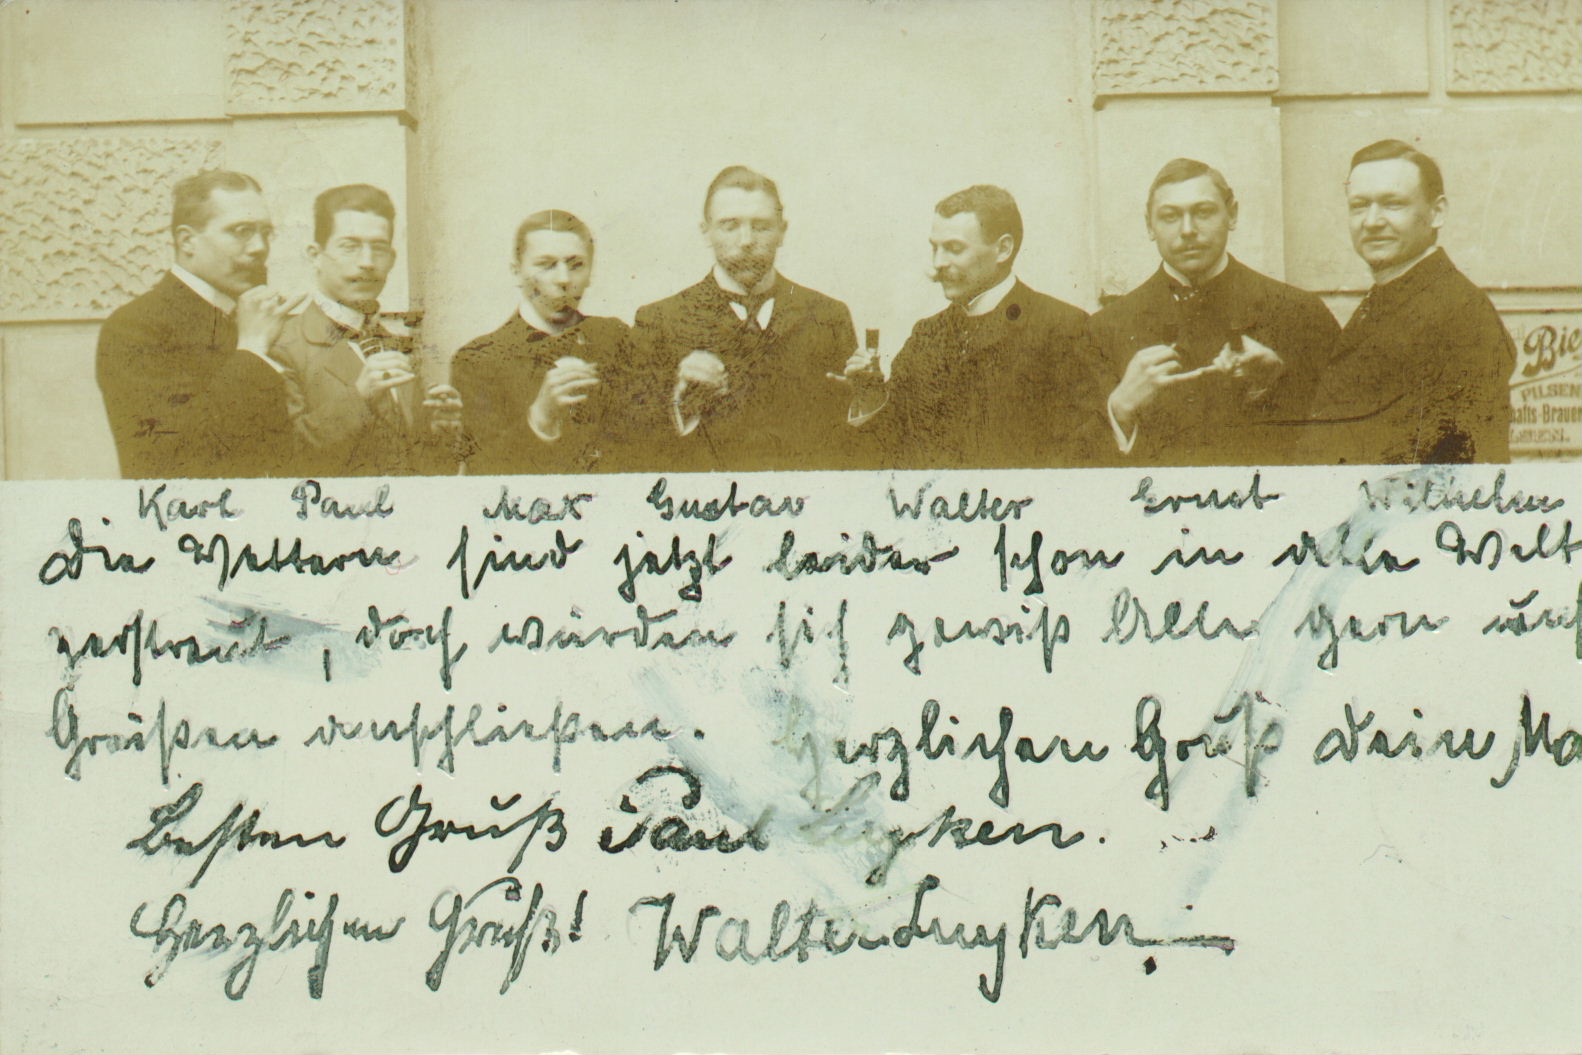 Bie
PILSEN
hafts-Brauer
Karl Paul Max Gustav Walter Ernst Wilhelm
Die Vettern sind jetzt leider schon in alle Welt
zerstreut, doch würden sich gewiß Alle gern
Grüßen anschließen. Herzlichen Gruß Dein Ma
Besten Gruß Paul Luyken.
Herzlichen Gruß! Walter Luyken.